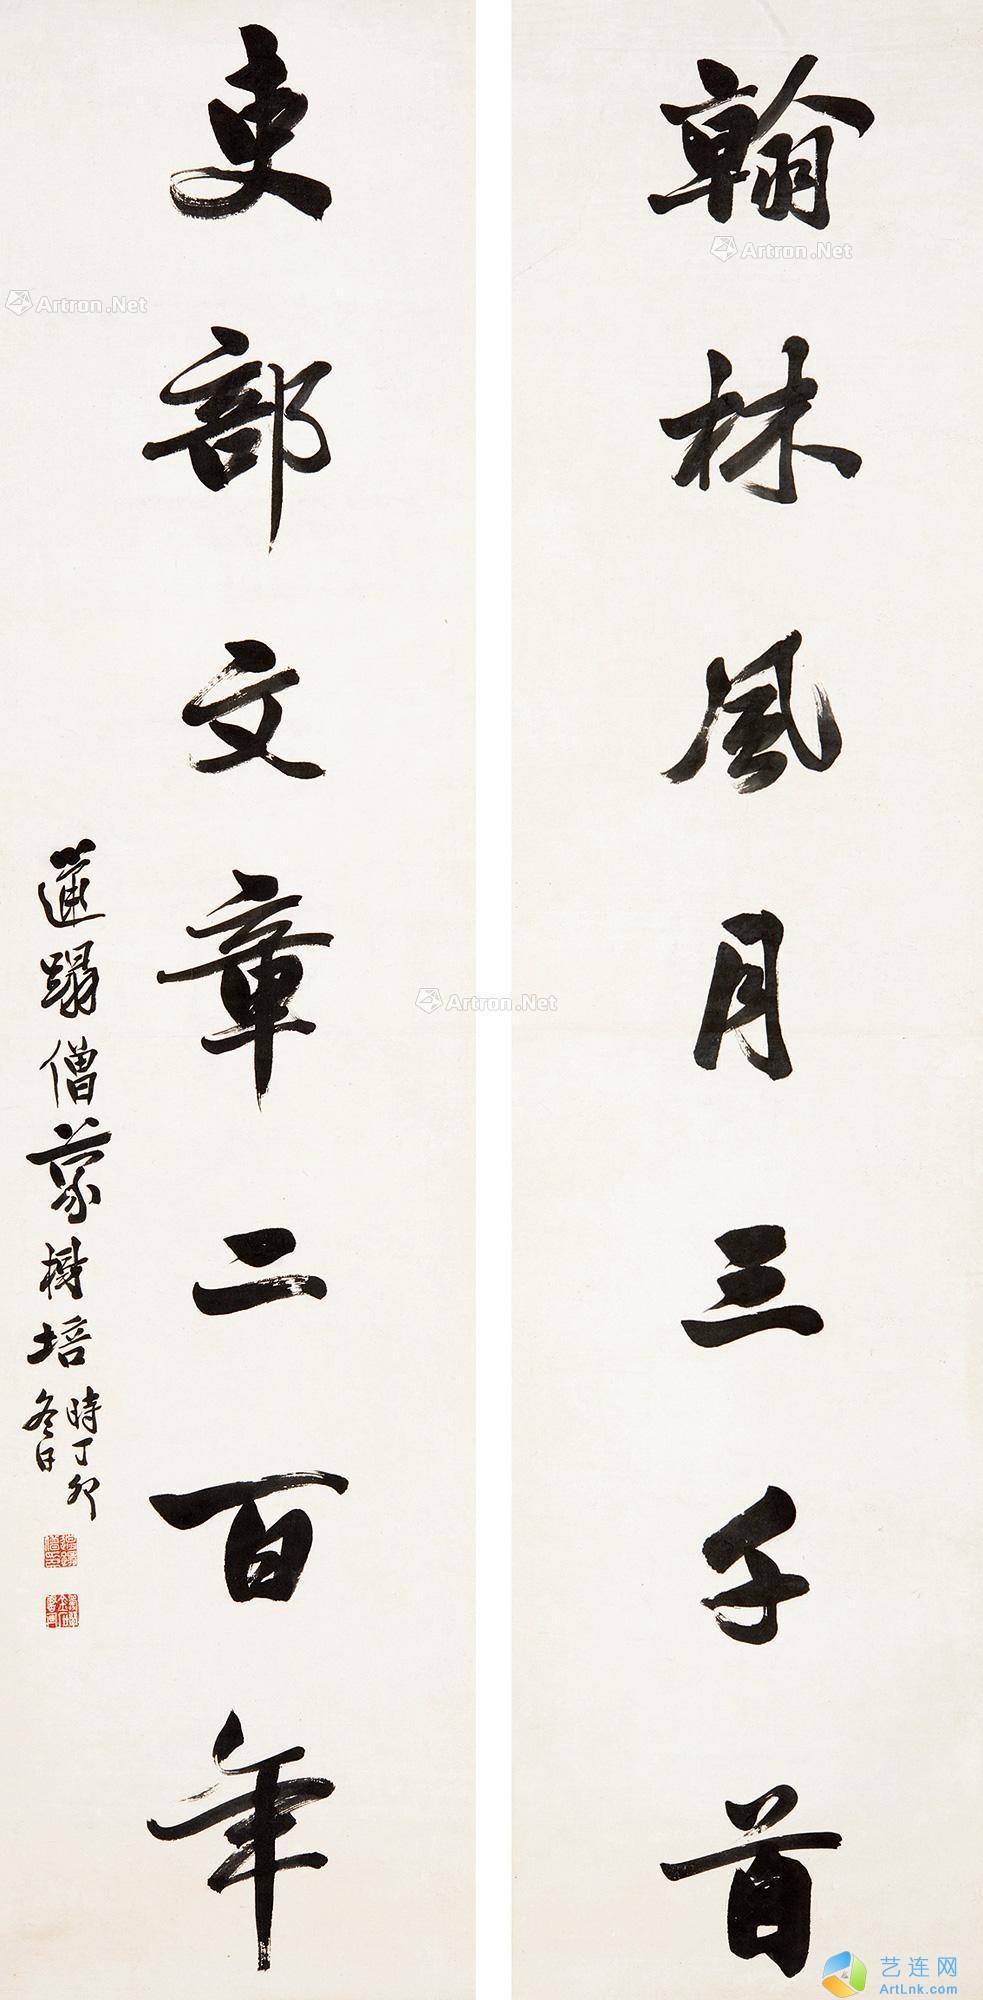 翰林風月三千首
吏部文章二百年
蓮蹋僧蒙樹培
時丁卯
冬日
Artron.Net
Artron.Net
Artron.Net
艺连网
ArtLnk.com